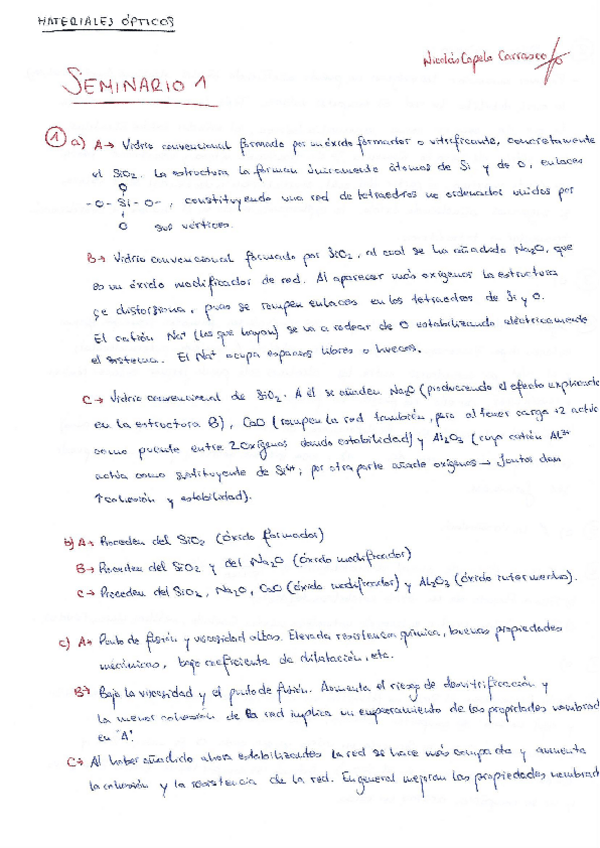 MATERIALES ÓPTICOS
Nicolás Capela Carrasco
SEMINARIO 1
1 a) A → Vidrio convencional formado por un óxido formador o vitrificante, concretamente
el SiO2. La estructura la forman únicamente átomos de Si y de O, enlaces
O
-O-Si-O-, constituyendo una red de tetraedros no ordenados unidos por
O sus vértices.
B → Vidrio convencional formado por SiO2, al cual se ha añadido Na2O, que
es un óxido modificador de red. Al aparecer más oxígenos la estructura
se distorsiona, pues se rompen enlaces en los tetraedros de Si y O.
El catión Na+ (los que hayan) se va a rodear de O estabilizando eléctricamente
el sistema. El Na+ ocupa espacios libres o huecos.
C → Vidrio convencional de SiO2. A él se añaden Na2O (produciendo el efecto explicado
en la estructura B), CaO (rompen la red también, pero al tener carga +2 actúa
como puente entre 2 oxígenos dando estabilidad) y Al2O3 (cuyo catión Al3+
actúa como sustituyente de Si4+; por otra parte añade oxígenos → Juntos dan
↑ cohesión y estabilidad).
b) A → Proceden del SiO2 (óxido formador)
B → Proceden del SiO2 y del Na2O (óxido modificador)
C → Proceden del SiO2, Na2O, CaO (óxido modificador) y Al2O3 (óxido intermedio).
c) A → Punto de fusión y viscosidad altos. Elevada resistencia química, buenas propiedades
mecánicas, bajo coeficiente de dilatación, etc.
B → Baja la viscosidad y el punto de fusión. Aumenta el riesgo de desvitrificación y
la menor cohesión de la red implica un empeoramiento de las propiedades nombrad
en "A".
C → Al haber añadido ahora estabilizantes la red se hace más compacta y aumenta
la cohesión y la resistencia de la red. En general mejoran las propiedades nombrad